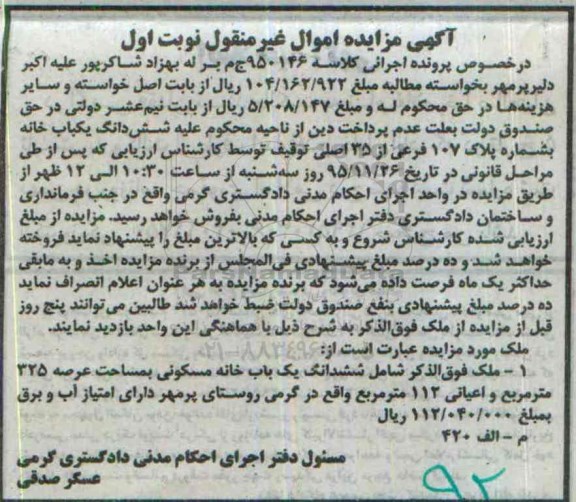 آگهی مزایده اموال غیرمنقول نوبت اول
درخصوص پرونده اجرائی کلاسه ۹۵۰۱۴۶ج م له بهزاد شاکرپور علیه اکبر
دلیرپرمهر بخواسته مطالبه مبلغ ۱۰۴/۱۶۲/۹۲۲ ریال از بابت اصل خواسته و سایر
هزینه‌ها در حق محکوم له و مبلغ ۵/۲۰۸/۱۴۷ ریال از بابت نیم‌عشر دولتی در حق
صندوق دولت بعلت عدم پرداخت دین از ناحیه محکوم علیه شش‌دانگ یکباب خانه
بشماره پلاک ۱۰۷ فرعی از ۳۵ اصلی توقیف توسط کارشناس ارزیابی که پس از طی
مراحل قانونی در تاریخ ۹۵/۱۱/۲۶ روز سه‌شنبه از ساعت ۱۰:۳۰ الی ۱۲ ظهر از
طریق مزایده در واحد اجرای احکام مدنی دادگستری گرمی واقع در جنب فرمانداری
و ساختمان دادگستری دفتر اجرای احکام مدنی بفروش خواهد رسید. مزایده از مبلغ
ارزیابی شده کارشناس شروع و به کسی که بالاترین مبلغ را پیشنهاد نماید فروخته
خواهد شد و ده درصد مبلغ پیشنهادی فی‌المجلس از برنده مزایده اخذ و به مابقی
حداکثر یک ماه فرصت داده می‌شود که برنده مزایده به هر عنوان اعلام انصراف نماید
ده درصد مبلغ پیشنهادی بنفع صندوق دولت ضبط خواهد شد طالبین می‌توانند پنج روز
قبل از مزایده از ملک فوق‌الذکر به شرح ذیل با هماهنگی این واحد بازدید نمایند.
ملک مورد مزایده عبارت است از:
۱ - ملک فوق‌الذکر شامل ششدانگ یک باب خانه مسکونی بمساحت عرصه ۳۲۵
مترمربع و اعیانی ۱۱۲ مترمربع واقع در گرمی روستای پرمهر دارای امتیاز آب و برق
بمبلغ ۱۱۲/۰۴۰/۰۰۰ ریال
م - الف ۴۲۰
مسئول دفتر اجرای احکام مدنی دادگستری گرمی
عسگر صدقی
۹۲